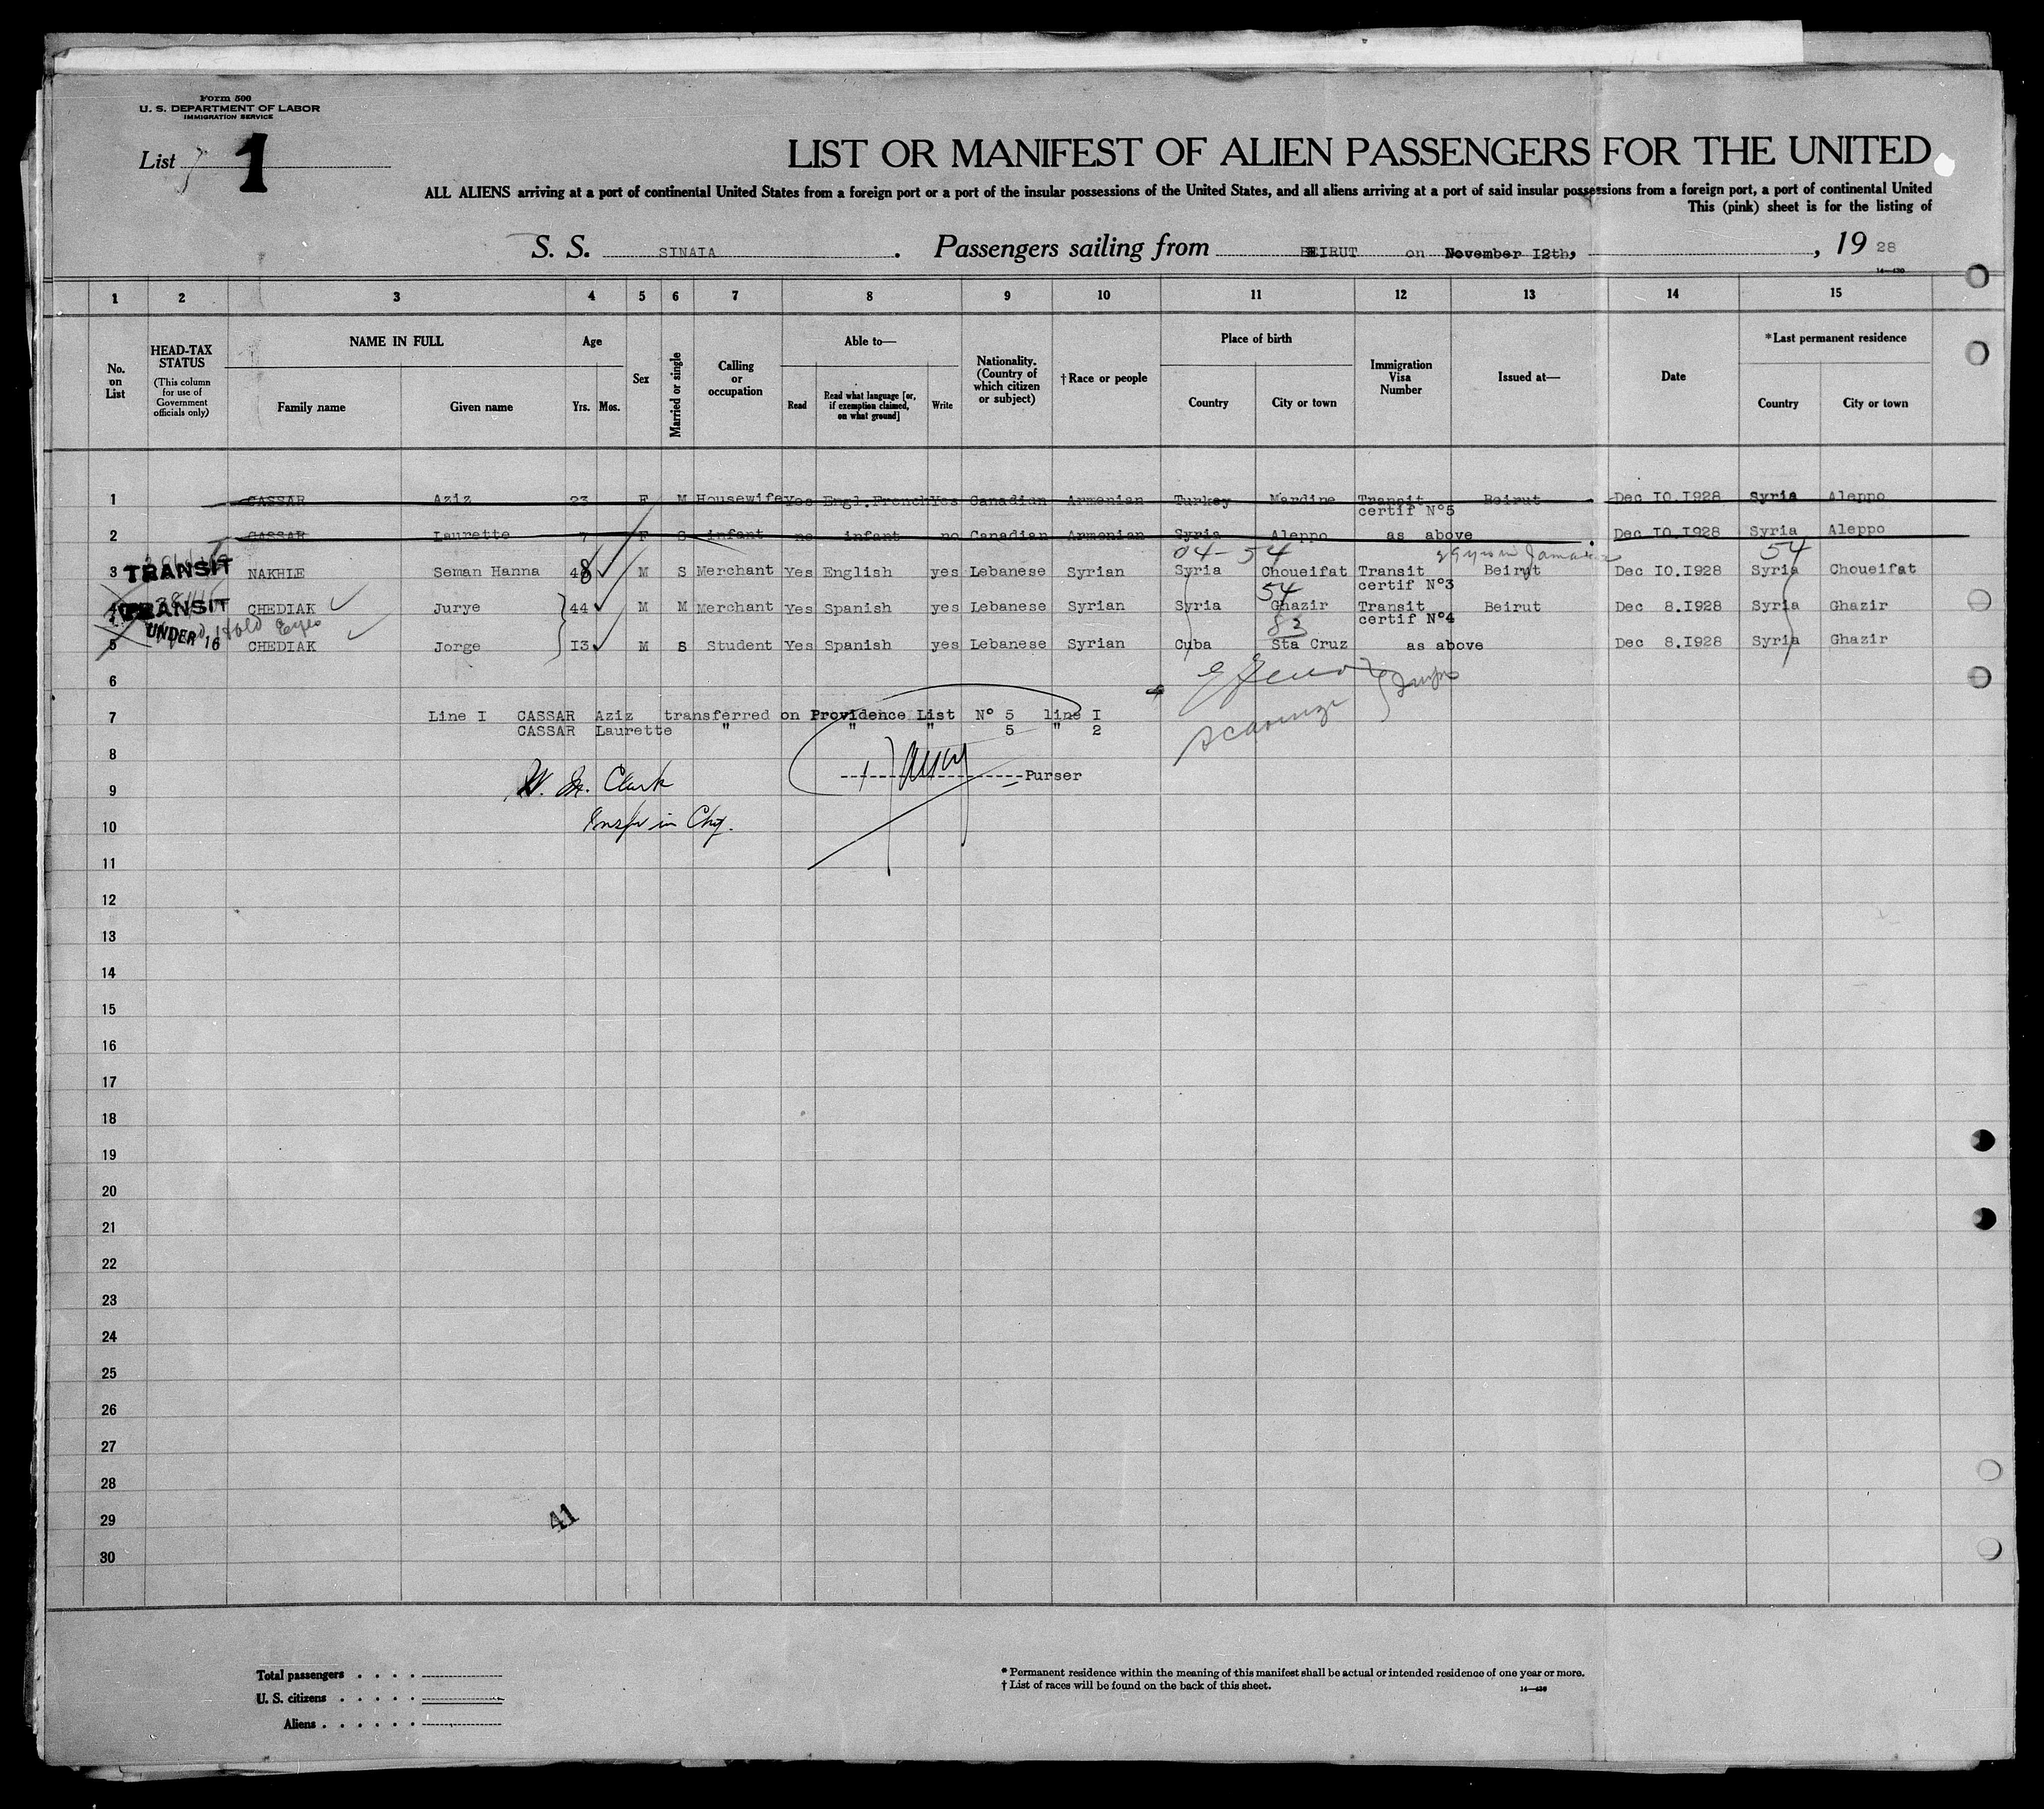 Form 500
U. S. DEPARTMENT OF LABOR
IMMIGRATION SERVICE
List 1
LIST OR MANIFEST OF ALIEN PASSENGERS FOR THE UNITED
ALL ALIENS arriving at a port of continental United States from a foreign port or a port of the insular possessions of the United States, and all aliens arriving at a port of said insular possessions from a foreign port, a port of continental United
This (pink) sheet is for the listing of
S. S. SINAIA . Passengers sailing from BEIRUT on November I2th, , 19 28
14—430
1 2 3 4 5 6 7 8 9 10 11 12 13 14 15
No. on List
HEAD-TAX STATUS (This column for use of Government officials only)
NAME IN FULL
Family name Given name
Age
Yrs. Mos.
Sex
Married or single
Calling or occupation
Able to—
Read Read what language [or, if exemption claimed, on what ground] Write
Nationality. (Country of which citizen or subject)
† Race or people
Place of birth
Country City or town
Immigration Visa Number
Issued at—
Date
* Last permanent residence
Country City or town
1 CASSAR Aziz 23 F M Housewife Yes Engl.French Yes Canadian Armenian Turkey Mardine Transit Beirut Dec I0.I928 Syria Aleppo
certif N°5
2 CASSAR Laurette 7 F S infant no infant no Canadian Armenian Syria Aleppo as above Dec I0.I928 Syria Aleppo
04- 54 Jamaica 54
3 TRANSIT NAKHLE Seman Hanna 48 M S Merchant Yes English yes Lebanese Syrian Syria Choueifat Transit Beirut Dec I0.I928 Syria Choueifat
certif N°3
54
4 TRANSIT CHEDIAK Jurye 44 M M Merchant Yes Spanish yes Lebanese Syrian Syria Ghazir Transit Beirut Dec 8.I928 Syria Ghazir
certif N°4
UNDER 16 Hold Eyes 83
5 CHEDIAK Jorge I3 M S Student Yes Spanish yes Lebanese Syrian Cuba Sta Cruz as above Dec 8.I928 Syria Ghazir
6
7 Line I CASSAR Aziz transferred on Providence List N° 5 line I
CASSAR Laurette " " " 5 " 2
8
Purser
W. Clark
9
Inspr in Chg.
10
11
12
13
14
15
16
17
18
19
20
21
22
23
24
25
26
27
28
29
41
30
Total passengers . . . .
U. S. citizens . . . . .
Aliens . . . . . .
* Permanent residence within the meaning of this manifest shall be actual or intended residence of one year or more.
† List of races will be found on the back of this sheet.
14—430